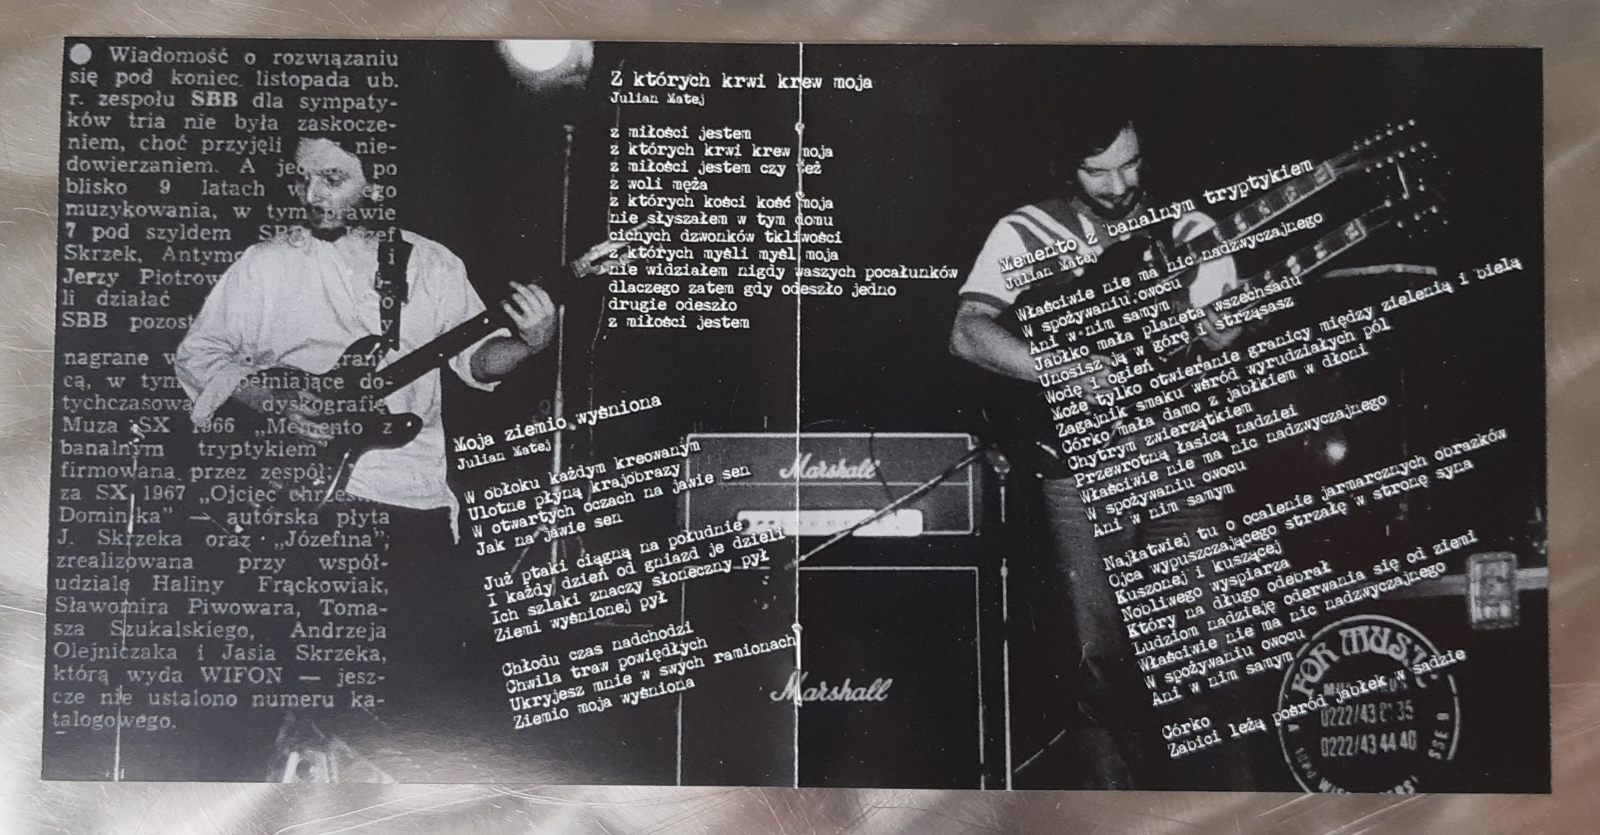 Wiadomość o rozwiązaniu
się pod koniec listopada ub.
r. zespołu SBB dla sympaty-
ków tria nie była zaskocze-
niem, choć przyjęli nie-
dowierzaniem. A po
blisko 9 latach
muzykowania, w tym prawie
7 pod szyldem SBB Józef
Skrzek, i
Jerzy
li działać
SBB
nagrane
cą, w tym do-
tychczasową dyskografię
Muza SX 1966 „Memento z
banalnym tryptykiem
firmowana przez zespół;
za SX 1967 „Ojciec
Dominika” — autorska płyta
J. Skrzeka oraz „Józefina”,
zrealizowana przy współ-
udziale Haliny Frąckowiak,
Sławomira Piwowara, Toma-
sza Szukalskiego, Andrzeja
Olejniczaka i Jasia Skrzeka,
którą wyda WIFON — jesz-
cze nie ustalono numeru ka-
talogowego.
Z których krwi krew moja
Julian Matej
z miłości jestem
z których krwi krew moja
z miłości jestem czy też
z woli męża
z których kości kość moja
nie słyszałem w tym domu
cichych dzwonków tkliwości
z których myśli myśl moja
nie widziałem nigdy waszych pocałunków
dlaczego zatem gdy odeszło jedno
drugie odeszło
z miłości jestem
Moja ziemio wyśniona
Julian Matej
W obłoku każdym kreowanym
Ulotne płyną krajobrazy
W otwartych oczach na jawie sen
Jak na jawie sen
Już ptaki ciągną na południe
I każdy dzień od gniazd je dzieli
Ich szlaki znaczy słoneczny pył
Ziemi wyśnionej pył
Chłodu czas nadchodzi
Chwila traw powiędłych
Ukryjesz mnie w swych ramionach
Ziemio moja wyśniona
Marshall
Marshall
Memento z banalnym tryptykiem
Julian Matej
Właściwie nie ma nic nadzwyczajnego
W spożywaniu owocu
Ani w nim samym
Jabłko mała planeta wszechsadu
Unosisz ją w górę i strząsasz
Wodę i ogień
Może tylko otwieranie granicy między zielenią i bielą
Zagajnik smaku wśród wyrudziałych pól
Córko mała damo z jabłkiem w dłoni
Chytrym zwierzątkiem
Przewrotną łasicą nadziei
Właściwie nie ma nic nadzwyczajnego
W spożywaniu owocu
Ani w nim samym
Najłatwiej tu o ocalenie jarmarcznych obrazków
Ojca wypuszczającego strzałę w stronę syna
Kuszonej i kuszącej
Nobliwego wyspiarza
Który na długo odebrał
Ludziom nadzieję oderwania się od ziemi
Właściwie nie ma nic nadzwyczajnego
W spożywaniu owocu
Ani w nim samym
Córko
Zabici leżą pośród jabłek w sadzie
FOR MUS
0222/43 44 40